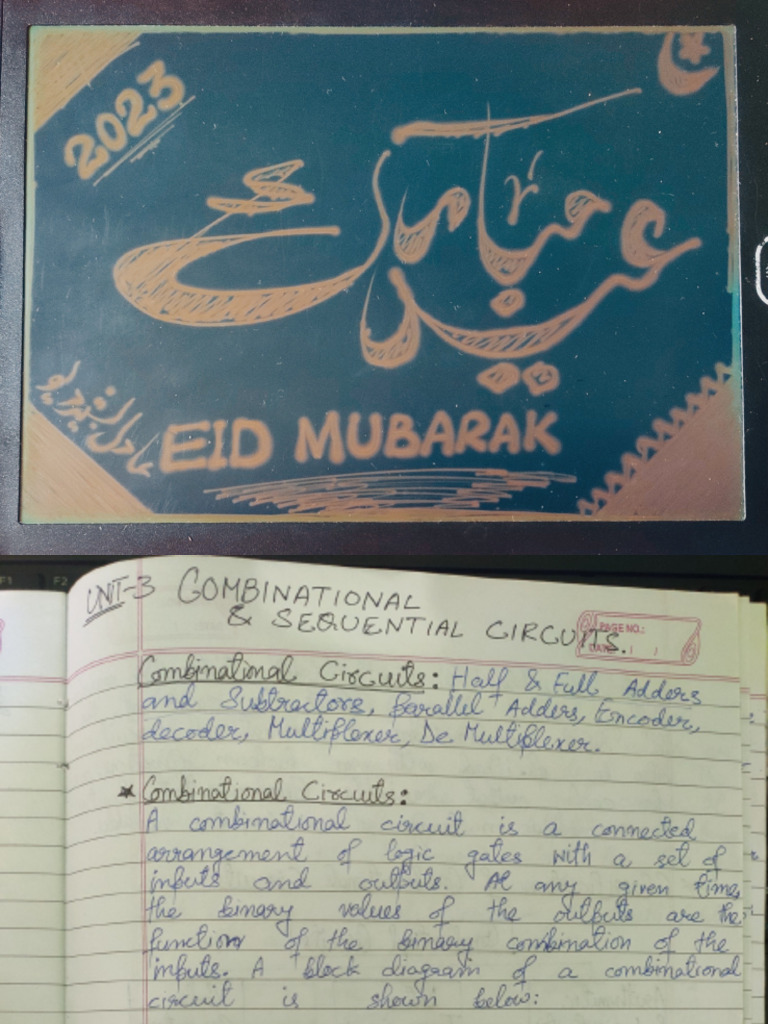 2023
عید مبارک
EID MUBARAK
F1 F2
UNIT-3 COMBINATIONAL
& SEQUENTIAL CIRCUITS.
PAGE NO.:
DATE: / /
Combinational Circuits: Half & Full Adders
and Subtractors, parallel Adders, Encoder,
decoder, Multiplexer, De Multiplexer.
* Combinational Circuits:
A combinational circuit is a connected
arrangement of logic gates with a set of
inputs and outputs. At any given time,
the binary values of the outputs are the
function of the binary combination of the
inputs. A block diagram of a combinational
circuit is shown below: